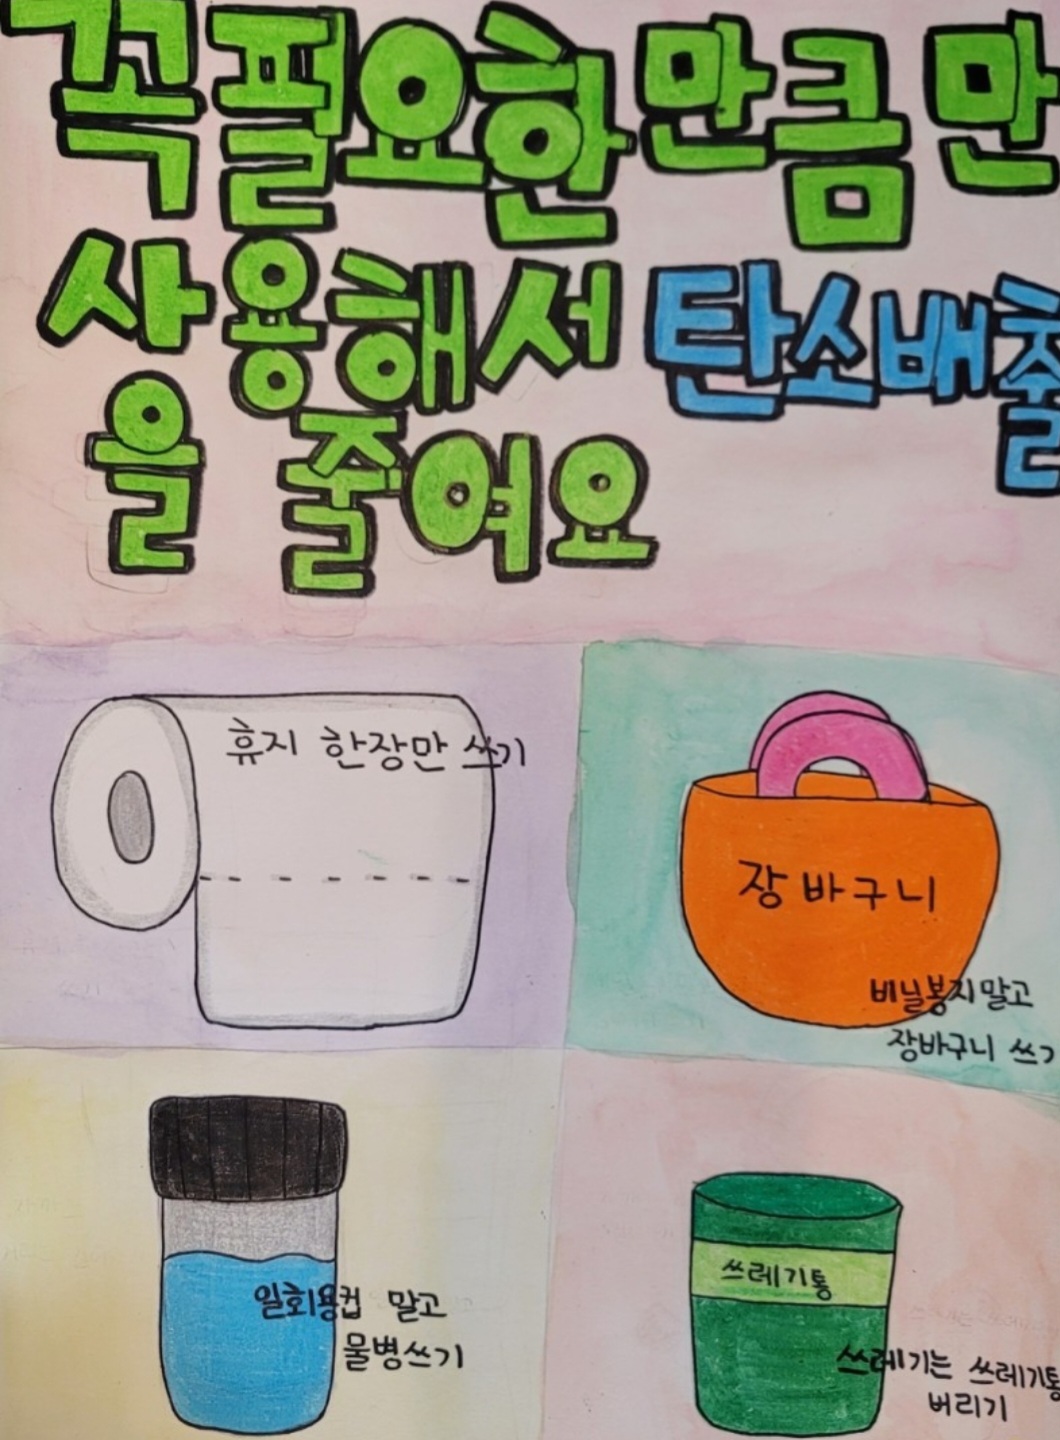 꼭필요한만큼만
사용해서 탄소배출
을 줄여요
휴지 한장만 쓰기
장바구니
비닐봉지말고
장바구니 쓰기
일회용컵 말고
물병쓰기
쓰레기통
쓰레기는 쓰레기통
버리기